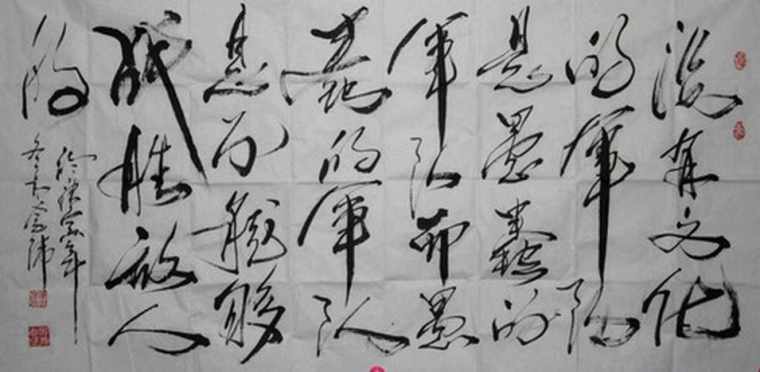 没有文化
的军队
是愚蠢的
军队而愚
蠢的军队
是不能够
战胜敌人
的